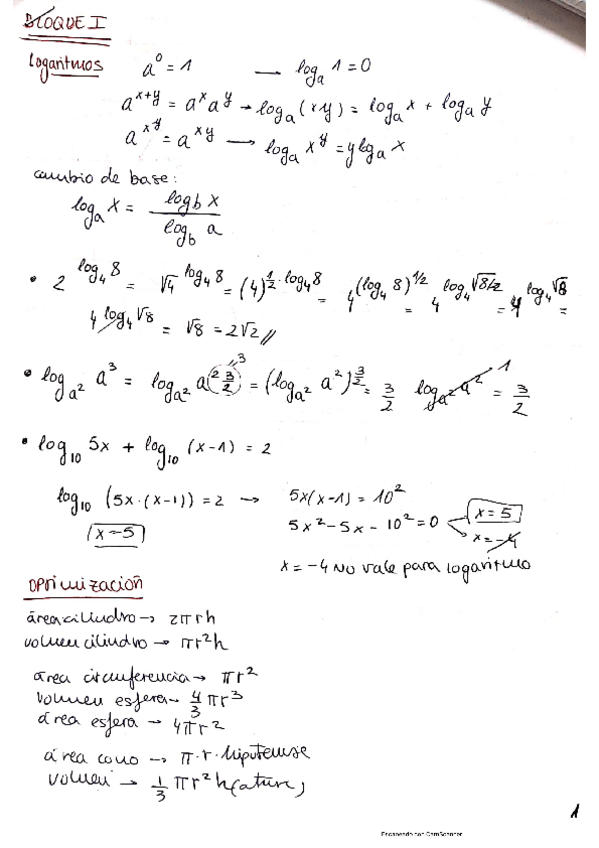 BLOQUE I
logaritmos a^0 = 1 — log_a 1 = 0
a^{x+y} = a^x a^y → log_a (xy) = log_a x + log_a y
a^{x^y} = a^{xy} → log_a x^y = y log_a x
cambio de base:
log_a x = log_b x / log_b a
• 2^{log_4 8} = √4^{log_4 8} = (4)^{1/2 · log_4 8} = 4^{(log_4 8)^{1/2}} = 4^{log_4 √8} = 4^{log_4 √8} =
4^{log_4 √8} = √8 = 2√2 //
• log_{a^2} a^3 = log_{a^2} a^{(2 3/2)} = (log_{a^2} a^2)^{3/2} = 3/2 log_{a^2} a^2 = 3/2
"3
1
• log_10 5x + log_10 (x-1) = 2
log_10 (5x·(x-1)) = 2 → 5x(x-1) = 10^2
5x^2 - 5x - 10^2 = 0 x = 5
x = -4
x = 5
x = -4 No vale para logaritmo
OPTIMIZACIÓN
área cilindro → 2πrh
volumen cilindro → πr^2h
área circunferencia → πr^2
volumen esfera → 4/3 πr^3
área esfera → 4πr^2
área cono → π·r·hipotenusa
volumen → 1/3 πr^2 h(altura)
1
Escaneado con CamScanner